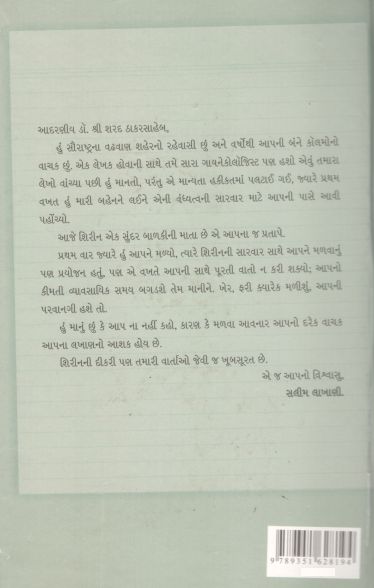 આદરણીય ડૉ. શ્રી શરદ ઠાકરસાહેબ,
હું સૌરાષ્ટ્રના વઢવાણ શહેરનો રહેવાસી છું અને વર્ષોથી આપની બંને કૉલમોનો
વાચક છું. એક લેખક હોવાની સાથે તમે સારા ગાયનેકોલોજિસ્ટ પણ હશો એવું તમારા
લેખો વાંચ્યા પછી હું માનતો, પરંતુ એ માન્યતા હકીકતમાં પલટાઈ ગઈ, જ્યારે પ્રથમ
વખત હું મારી બહેનને લઈને એની વંધ્યત્વની સારવાર માટે આપની પાસે આવી
પહોંચ્યો.
આજે શિરીન એક સુંદર બાળકીની માતા છે એ આપના જ પ્રતાપે.
પ્રથમ વાર જ્યારે હું આપને મળ્યો, ત્યારે શિરીનની સારવાર સાથે આપને મળવાનું
પણ પ્રયોજન હતું, પણ એ વખતે આપની સાથે પૂરતી વાતો ન કરી શક્યો; આપનો
કીમતી વ્યાવસાયિક સમય બગડશે તેમ માનીને. ખેર, ફરી ક્યારેક મળીશું, આપની
પરવાનગી હશે તો.
હું માનું છું કે આપ ના નહીં કહો, કારણ કે મળવા આવનાર આપનો દરેક વાચક
આપના લખાણનો આશક હોય છે.
શિરીનની દીકરી પણ તમારી વાર્તાઓ જેવી જ ખૂબસૂરત છે.
એ જ આપનો વિશ્વાસુ,
સલીમ લાખાણી.
9 789351 628194